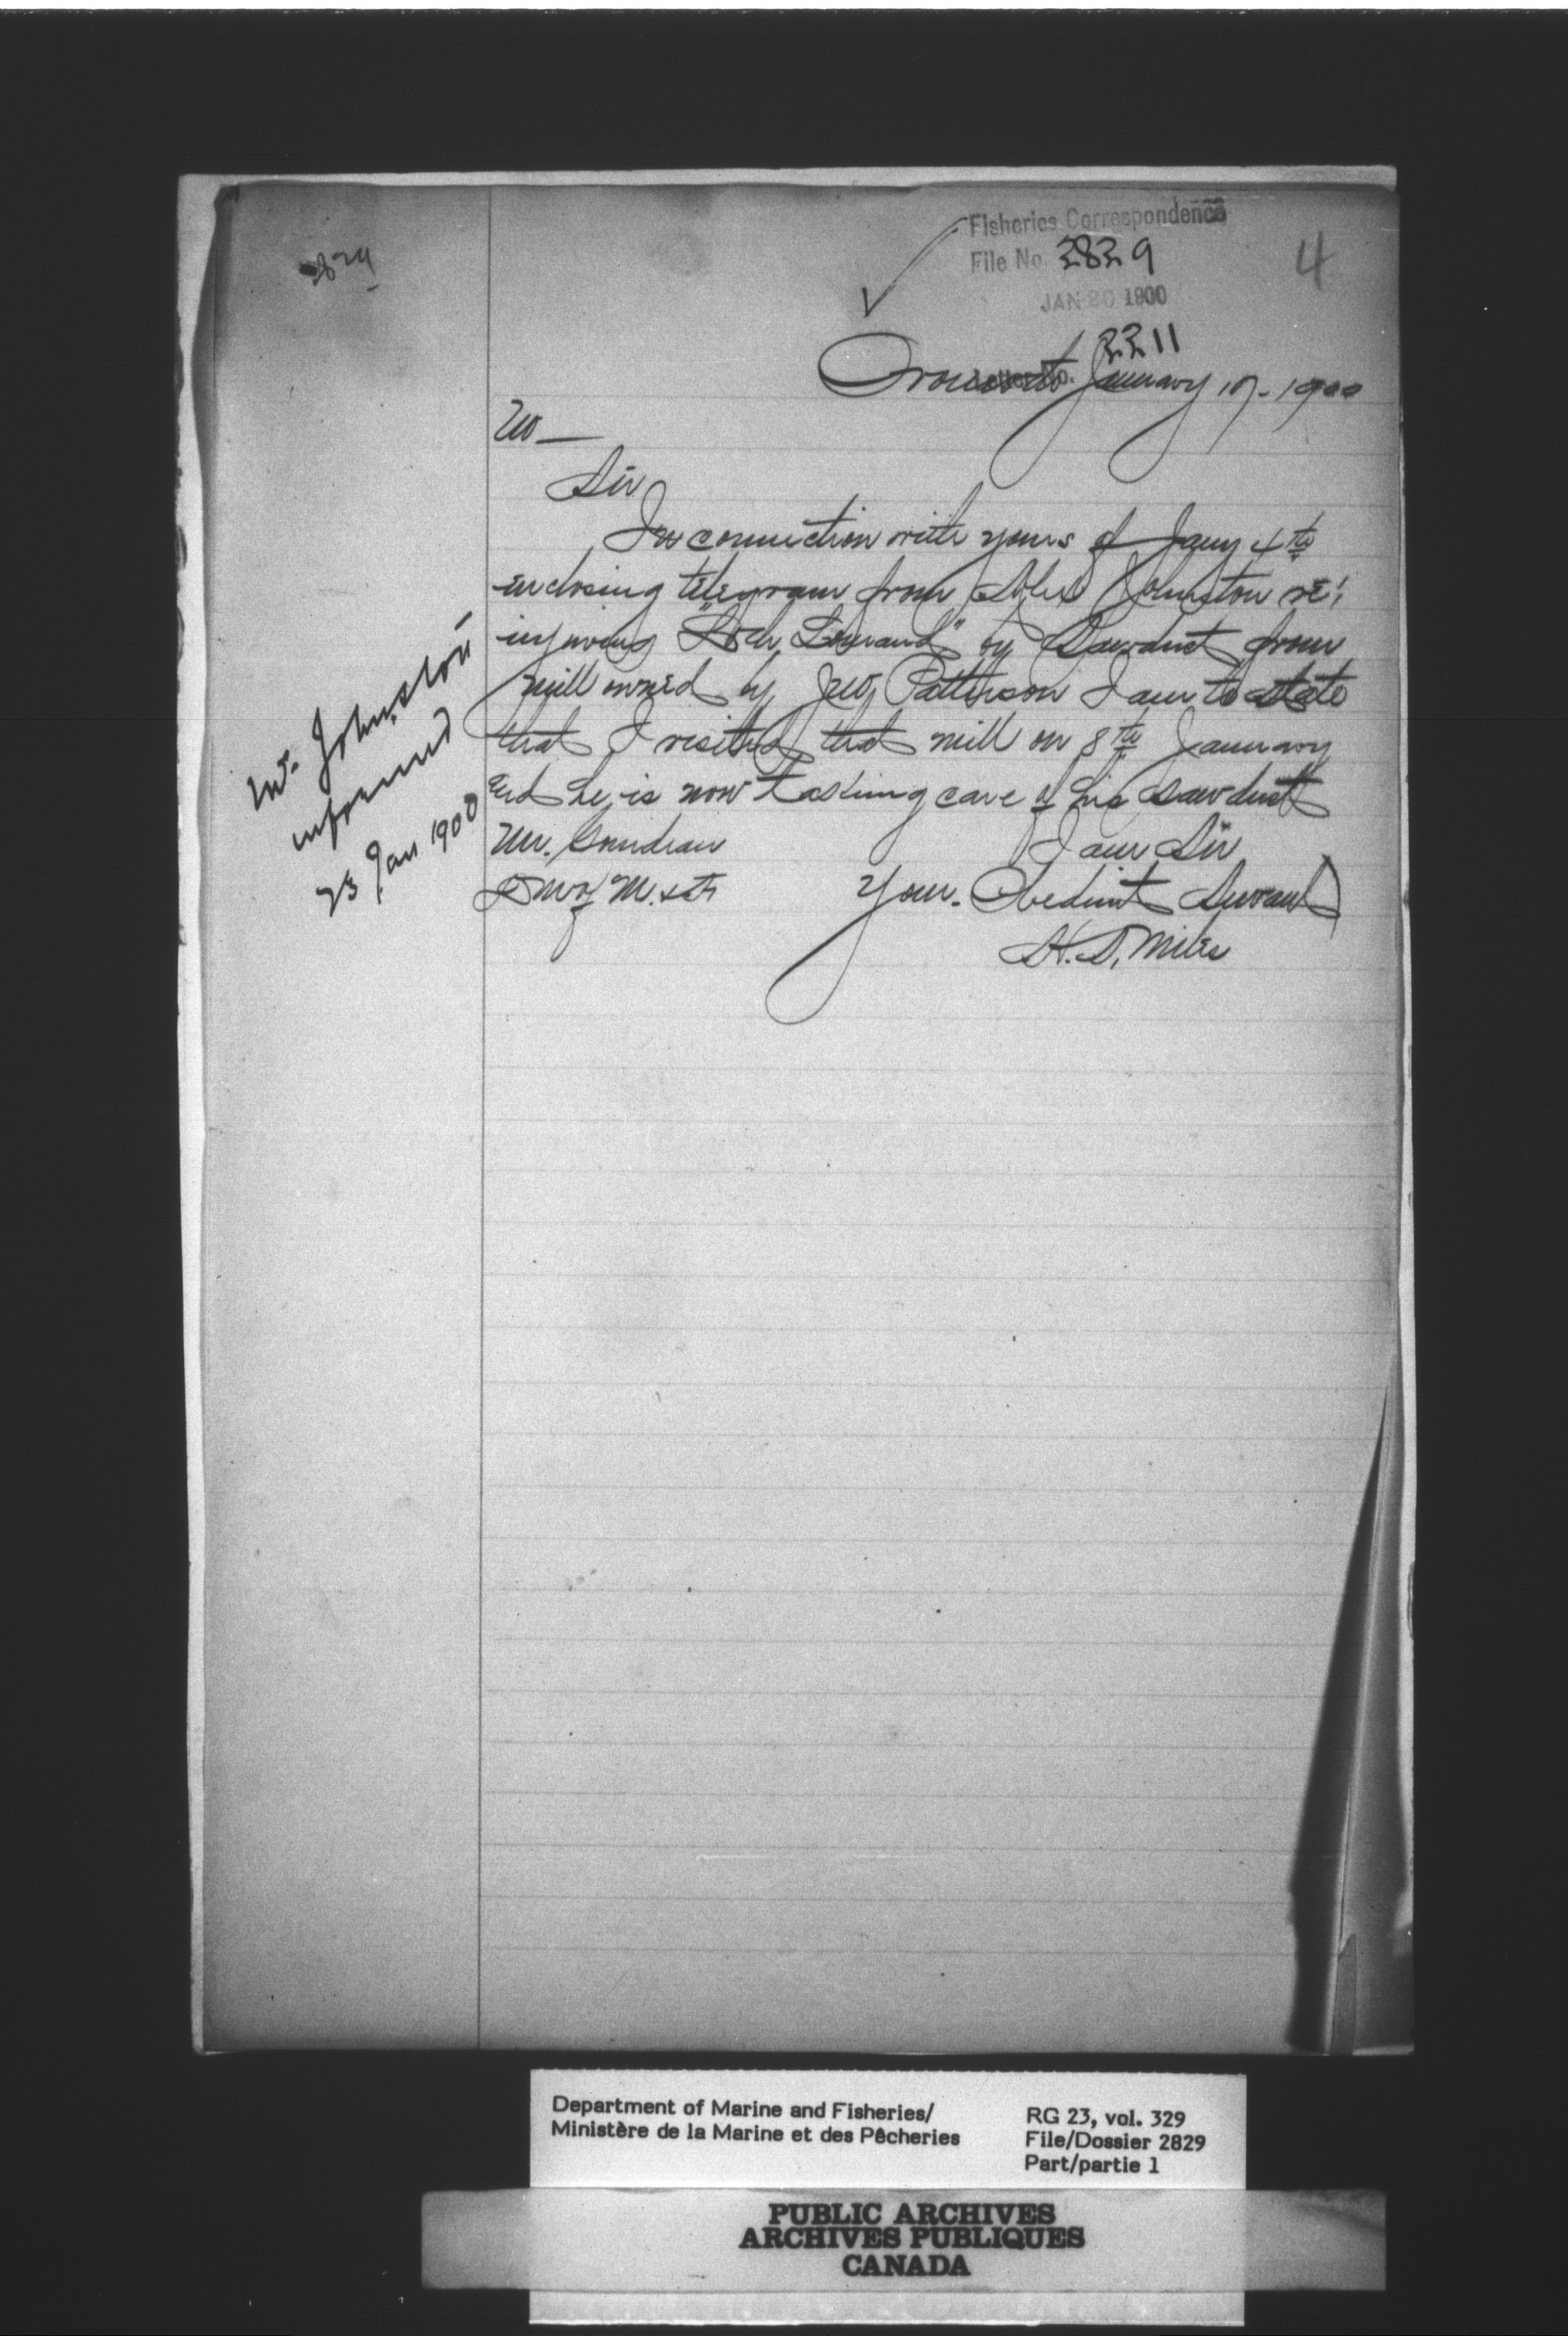 Fisheries Correspondence
File No. 2829
4
JAN 20 1900
2211
Oromocto January 17-1900
Sir
In connection with yours of Jany 4th
enclosing telegram from John Johnston re:
injuring "Loch Lomand" by Sawdust from
mill owned by Geo Patterson I am to state
that I visited that mill on 8th January
and he is now tasking care of his sawdust
Mr. Gourdeau
I am Sir
D M of M. & F
Your. Obedint Servant
H. S. Miles
Mr. Johnston
informed
23 Jan 1900
Department of Marine and Fisheries/
Ministère de la Marine et des Pêcheries
RG 23, vol. 329
File/Dossier 2829
Part/partie 1
PUBLIC ARCHIVES
ARCHIVES PUBLIQUES
CANADA